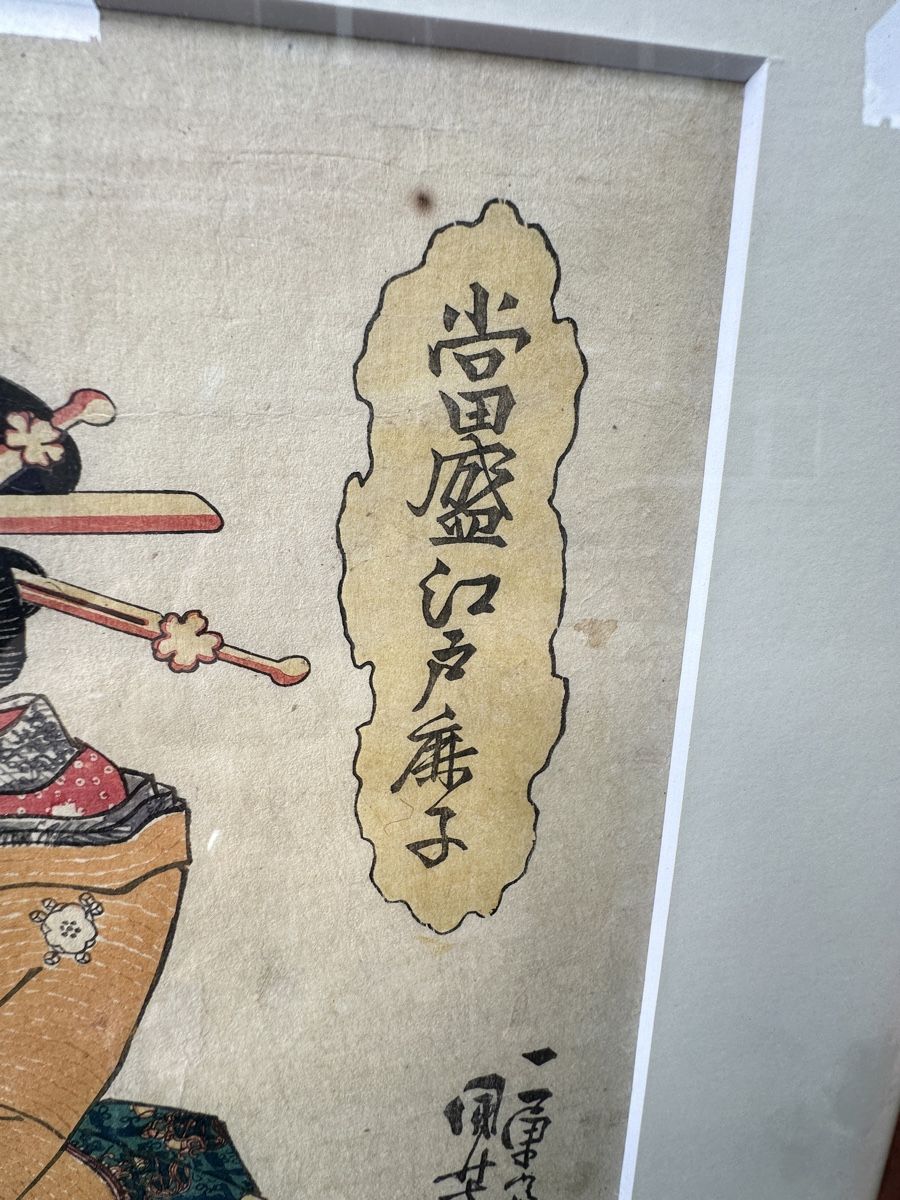 當盛江戸鹿子
一勇
國芳